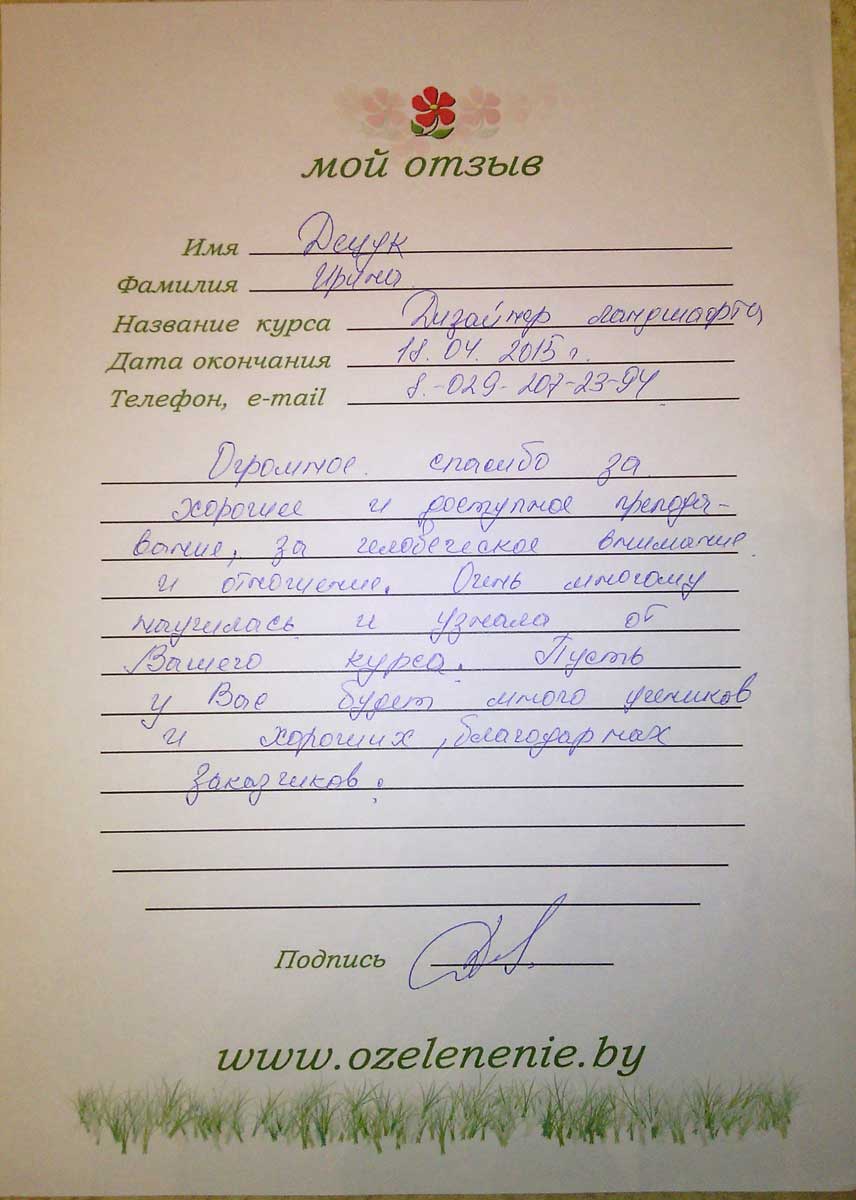 мой отзыв
Имя Децук
Фамилия Ирина
Название курса Дизайнер ландшафта
Дата окончания 18.04.2015 г.
Телефон, e-mail 8.-029-207-23-94
Огромное спасибо за
хорошее и доступное препода-
вание, за человеческое внимание
и отношение. Очень многому
научилась и узнала от
Вашего курса. Пусть
у Вас будет много учеников
и хороших, благодарных
заказчиков.
Подпись
www.ozelenenie.by